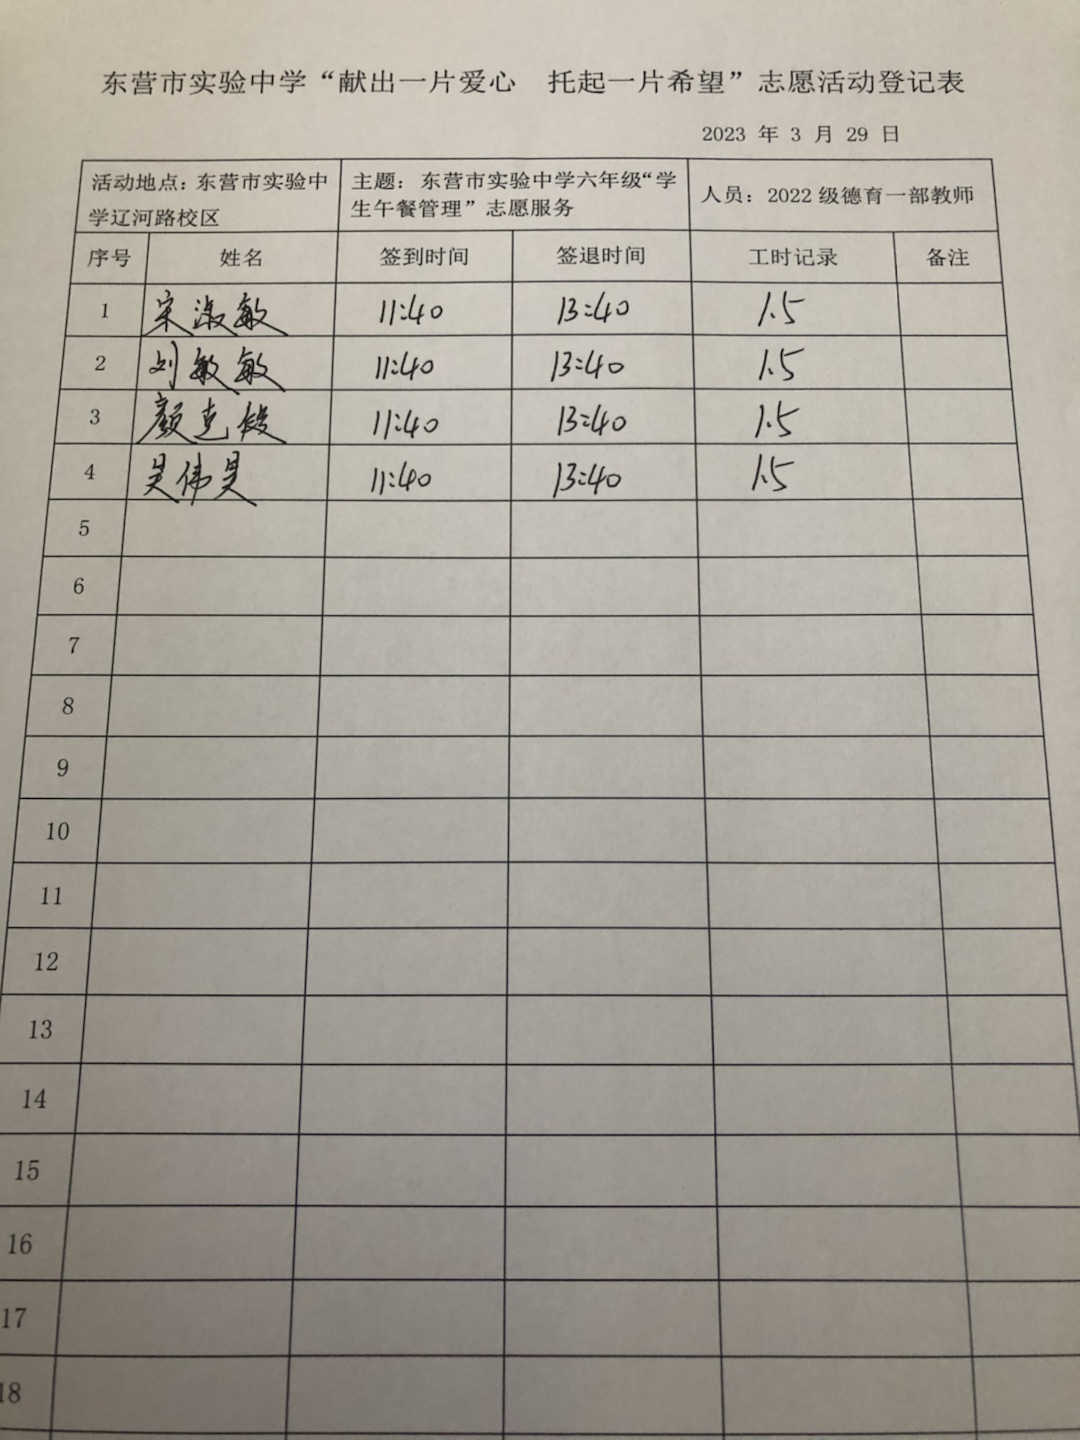 东营市实验中学“献出一片爱心 托起一片希望”志愿活动登记表
2023 年 3 月 29 日
活动地点：东营市实验中学辽河路校区 主题：东营市实验中学六年级“学生午餐管理”志愿服务 人员：2022 级德育一部教师
序号 姓名 签到时间 签退时间 工时记录 备注
1 宋淑敏 11:40 13:40 1.5
2 刘敏敏 11:40 13:40 1.5
3 颜克 11:40 13:40 1.5
4 吴伟昊 11:40 13:40 1.5
5
6
7
8
9
10
11
12
13
14
15
16
17
18